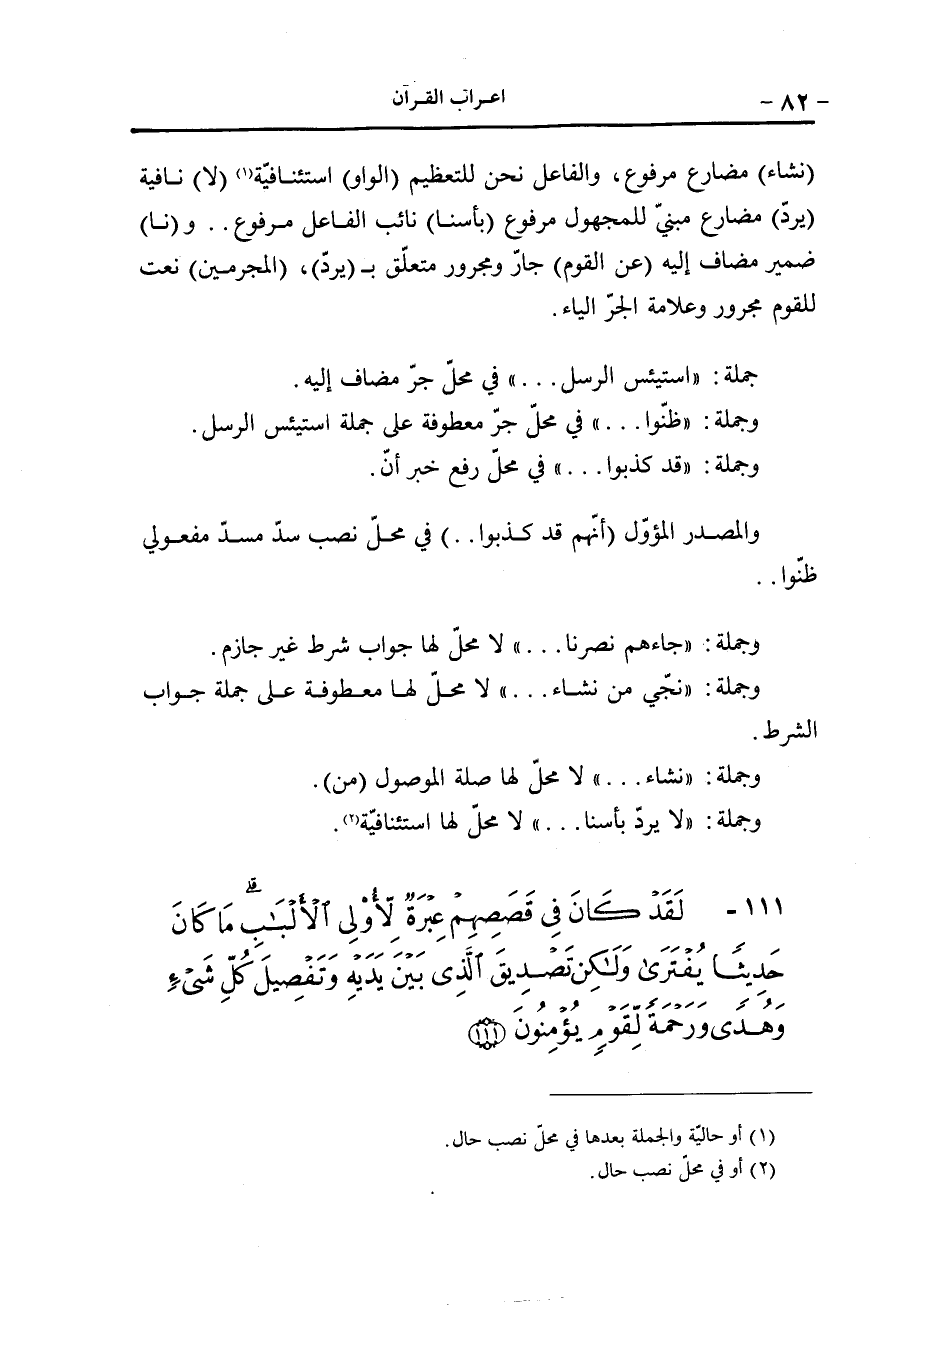 - ٨٢ -
اعراب القرآن
(نشاء) مضارع مرفوع، والفاعل نحن للتعظيم (الواو) استئنافيّة(١) (لا) نافية
(يردّ) مضارع مبنيّ للمجهول مرفوع (بأسنا) نائب الفاعل مرفوع.. و(نا)
ضمير مضاف إليه (عن القوم) جارّ ومجرور متعلّق بـ (يردّ)، (المجرمين) نعت
للقوم مجرور وعلامة الجرّ الياء.
جملة: «استيئس الرسل...» في محلّ جرّ مضاف إليه.
وجملة: «ظنّوا...» في محلّ جرّ معطوفة على جملة استيئس الرسل.
وجملة: «قد كذبوا...» في محلّ رفع خبر أنّ.
والمصدر المؤوّل (أنّهم قد كذبوا..) في محلّ نصب سدّ مسدّ مفعولي
ظنّوا..
وجملة: «جاءهم نصرنا...» لا محلّ لها جواب شرط غير جازم.
وجملة: «نجّي من نشاء...» لا محلّ لها معطوفة على جملة جواب
الشرط.
وجملة: «نشاء...» لا محلّ لها صلة الموصول (من).
وجملة: «لا يردّ بأسنا...» لا محلّ لها استئنافيّة(٢).
١١١ - لَقَدۡ كَانَ فِي قَصَصِهِمۡ عِبۡرَةٞ لِّأُوْلِي ٱلۡأَلۡبَٰبِۗ مَا كَانَ
حَدِيثٗا يُفۡتَرَىٰ وَلَٰكِن تَصۡدِيقَ ٱلَّذِي بَيۡنَ يَدَيۡهِ وَتَفۡصِيلَ كُلِّ شَيۡءٖ
وَهُدٗى وَرَحۡمَةٗ لِّقَوۡمٖ يُؤۡمِنُونَ ۝١١١
(١) أو حاليّة والجملة بعدها في محلّ نصب حال.
(٢) أو في محلّ نصب حال.